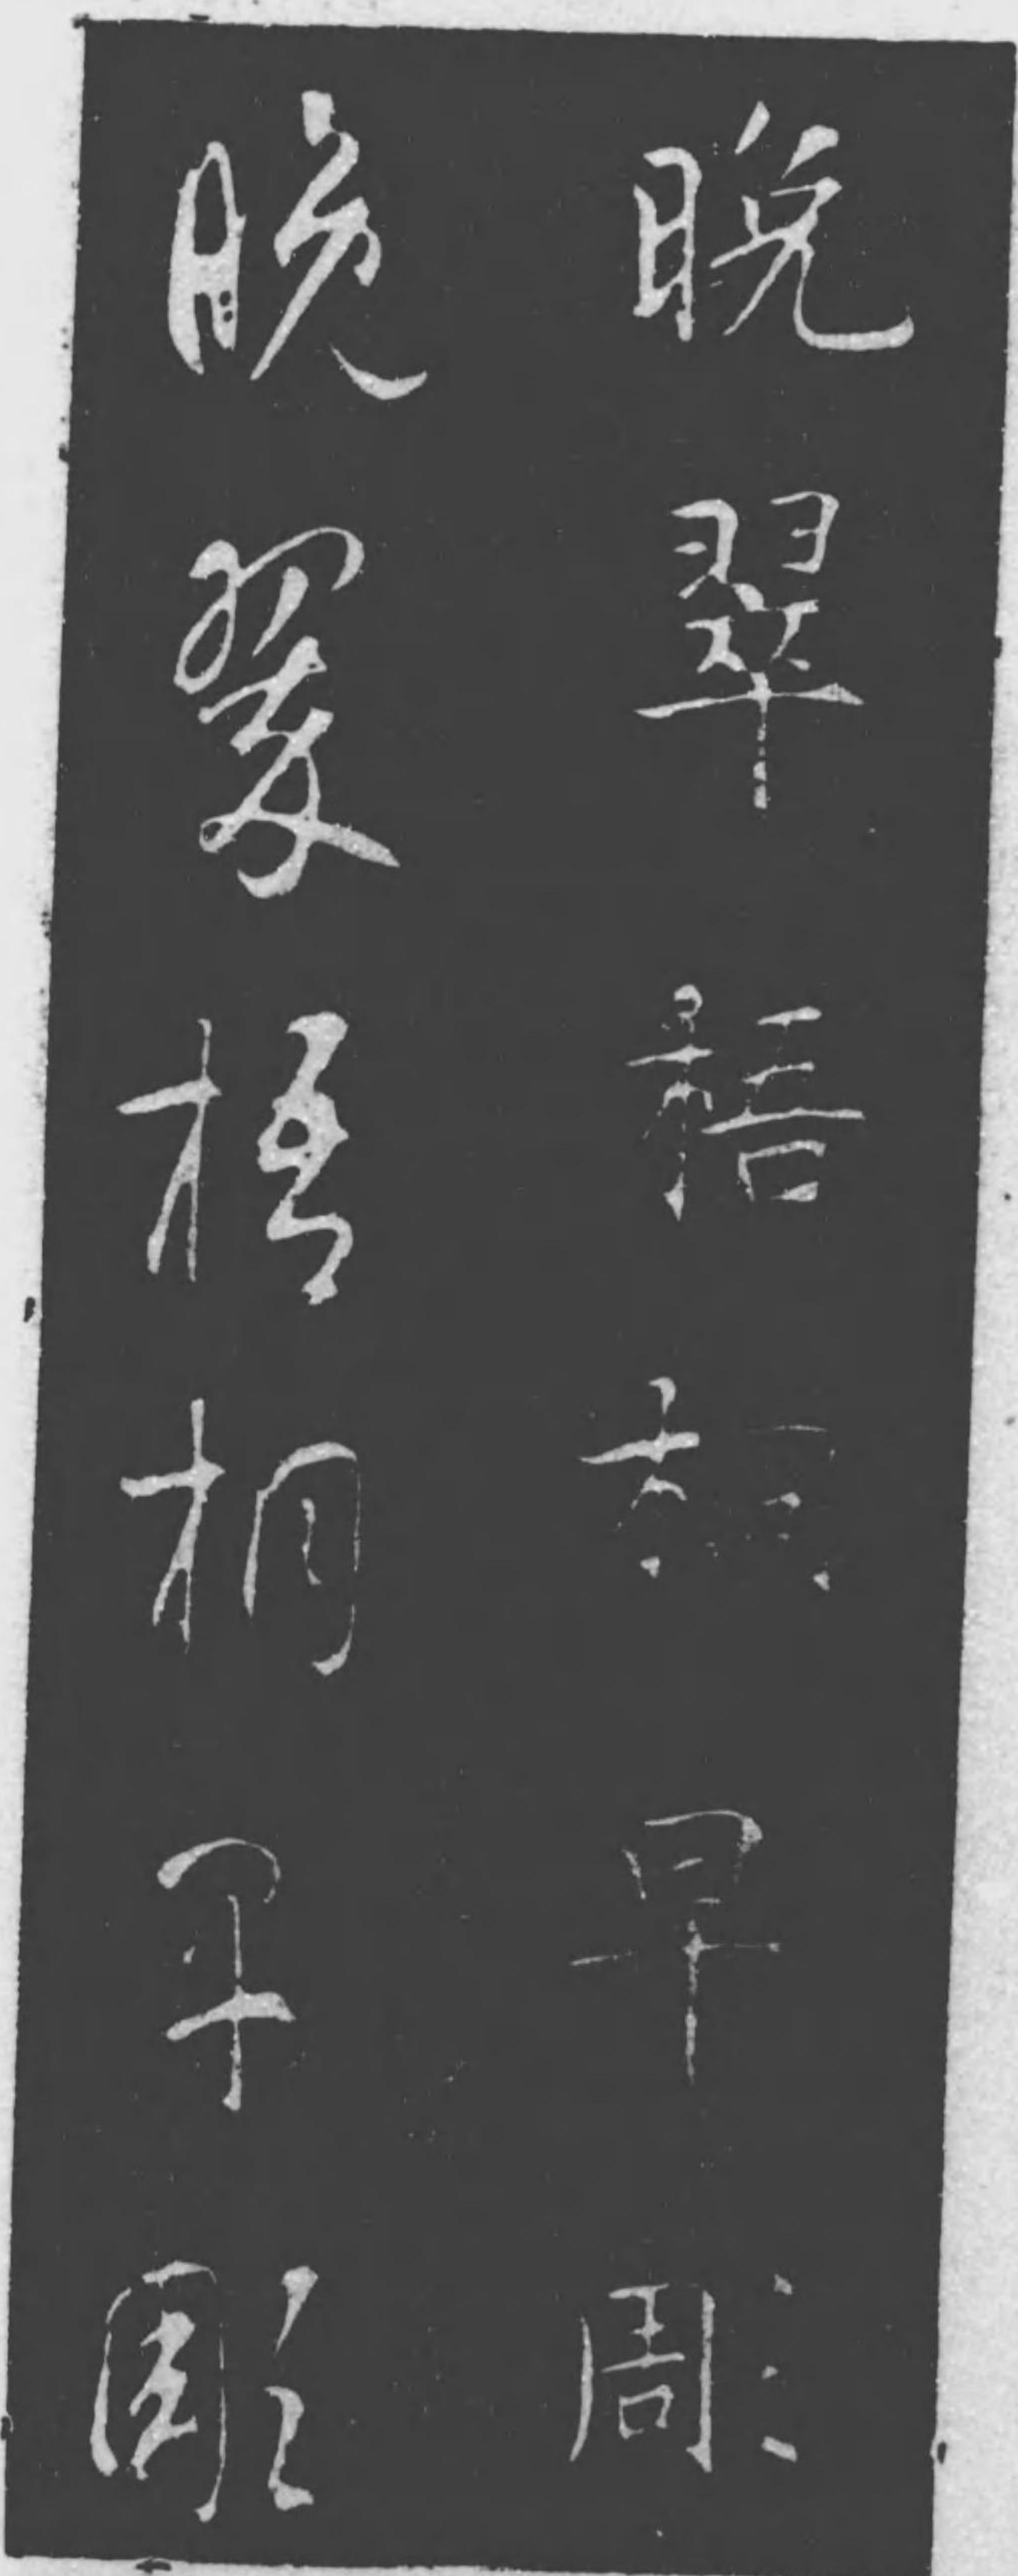 晚翠梧桐早彫
晚翠梧桐早彫